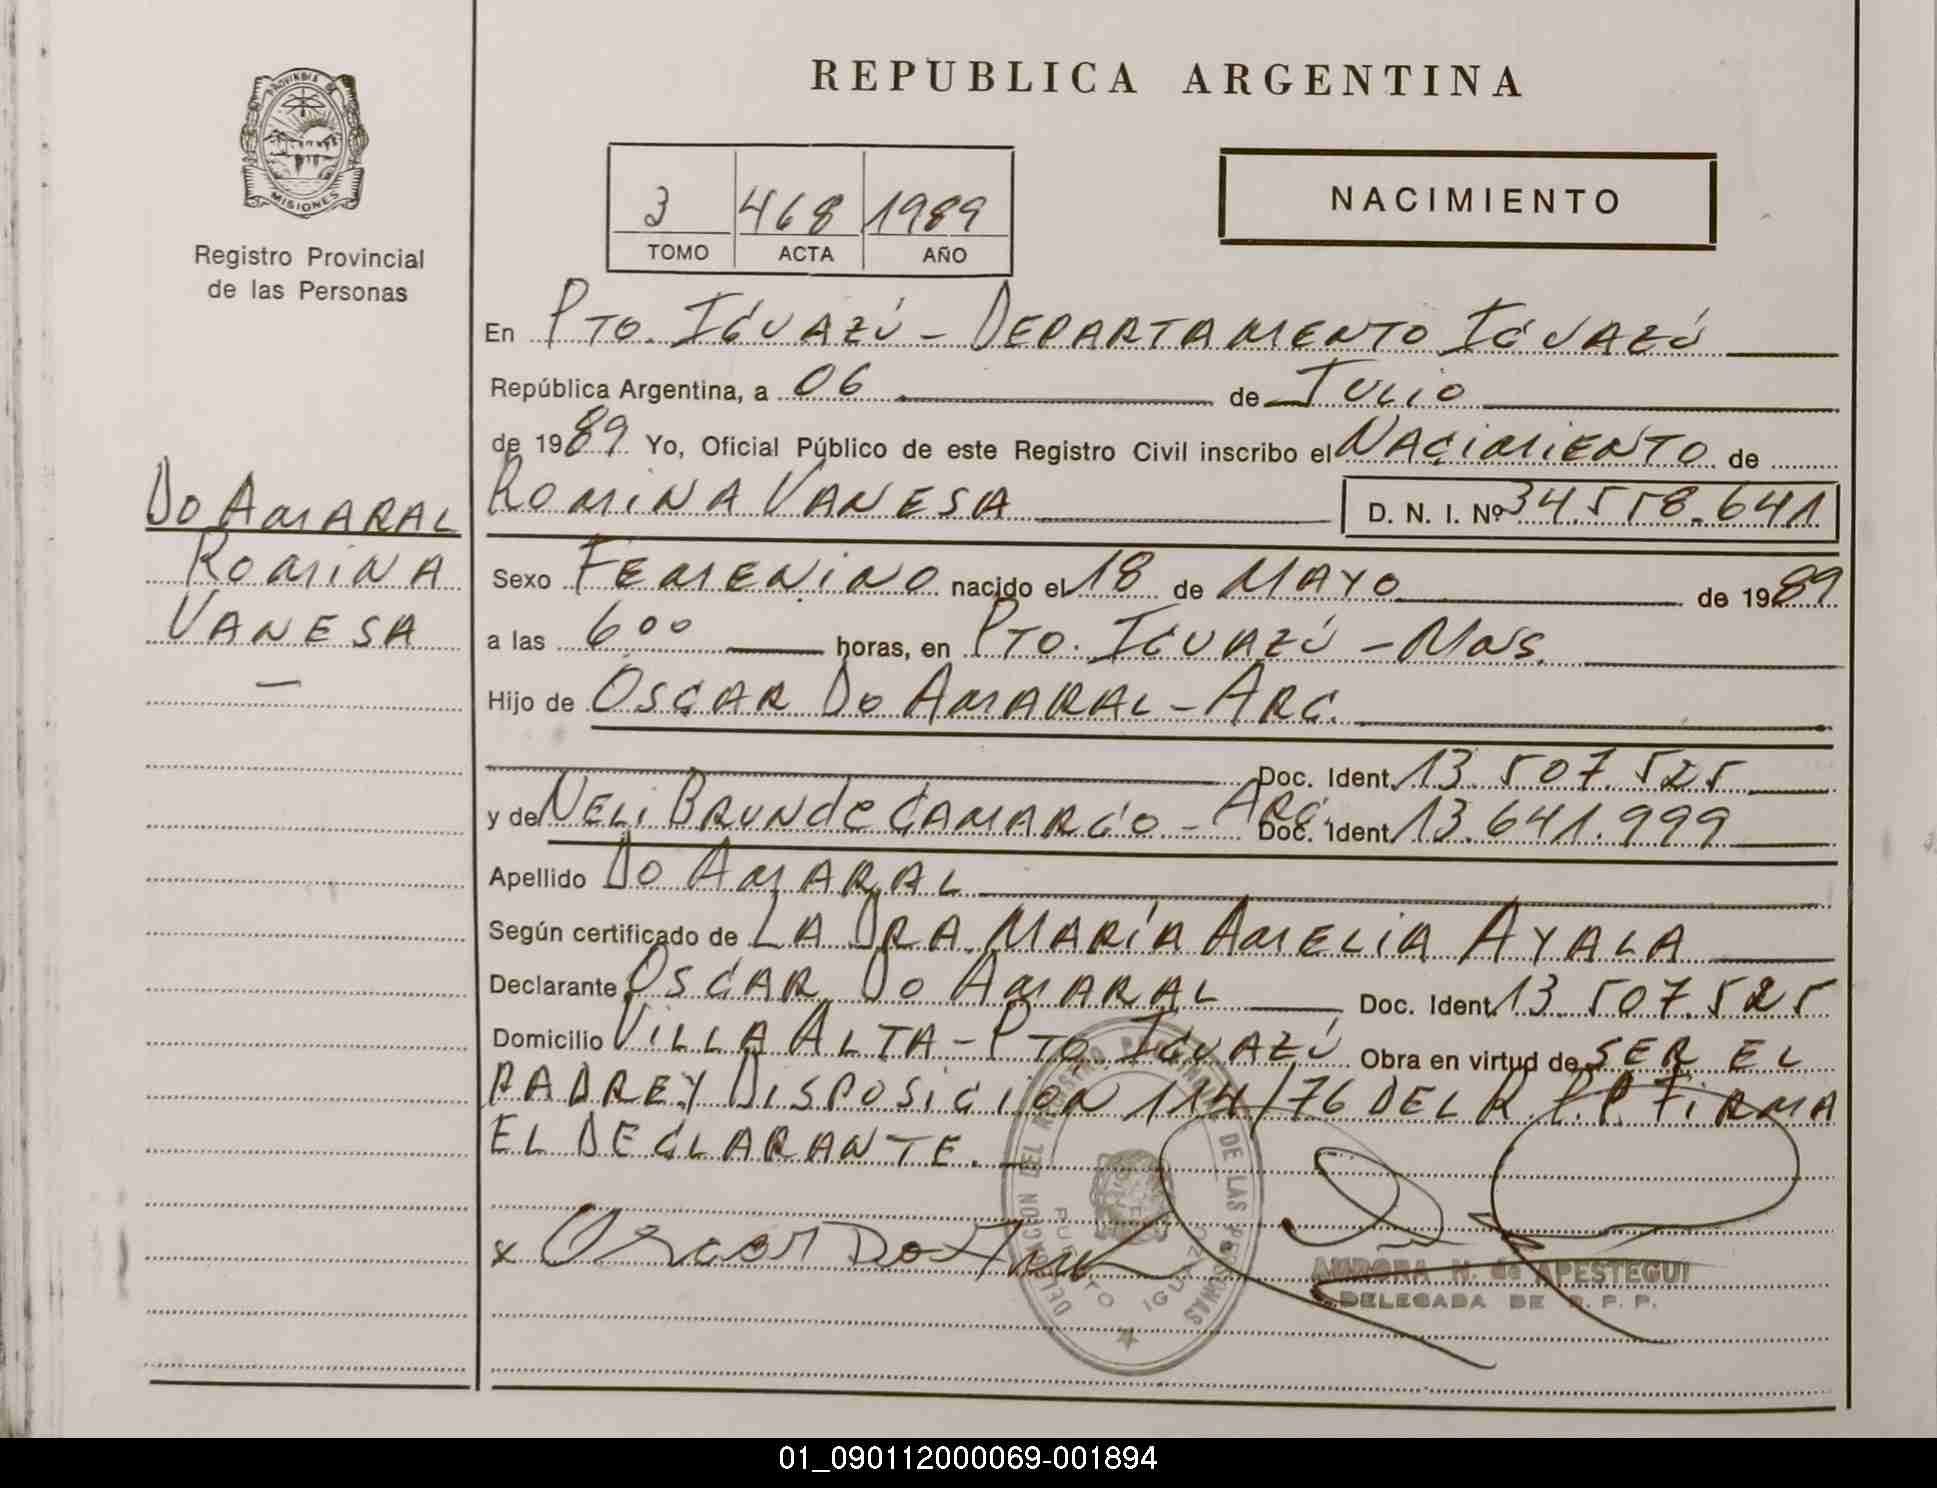 REPUBLICA ARGENTINA
PROVINCIA DE
MISIONES
Registro Provincial
de las Personas
3 468 1989
TOMO ACTA AÑO
NACIMIENTO
En PTO. IGUAZÚ - DEPARTAMENTO IGUAZÚ
República Argentina, a 06 de JULIO
de 1989 Yo, Oficial Público de este Registro Civil inscribo el NACIMIENTO de
ROMINA VANESA D. N. I. Nº 34.558.641
DO AMARAL
ROMINA
VANESA
Sexo FEMENINO nacido el 18 de MAYO de 1989
a las 6 00 horas, en PTO. IGUAZÚ - Mnes.
Hijo de OSCAR DO AMARAL - ARG.
Doc. Ident. 13.507.525
y de NELI BRUN de CAMARGO - ARG. Doc. Ident. 13.641.999
Apellido DO AMARAL
Según certificado de LA DRA. MARÍA AMELIA AYALA
Declarante OSCAR DO AMARAL Doc. Ident. 13.507.525
Domicilio VILLA ALTA - PTO. IGUAZÚ Obra en virtud de SER EL
PADRE Y DISPOSICIÓN 114/76 DEL R.P.P. FIRMA
EL DECLARANTE. -
x Oscar Do
DEL REGISTRO PROVINCIAL DE LAS PERSONAS
PUERTO IGUAZU
AURORA N. de APESTEGUI
DELEGADA DE R. P. P.
01_090112000069-001894